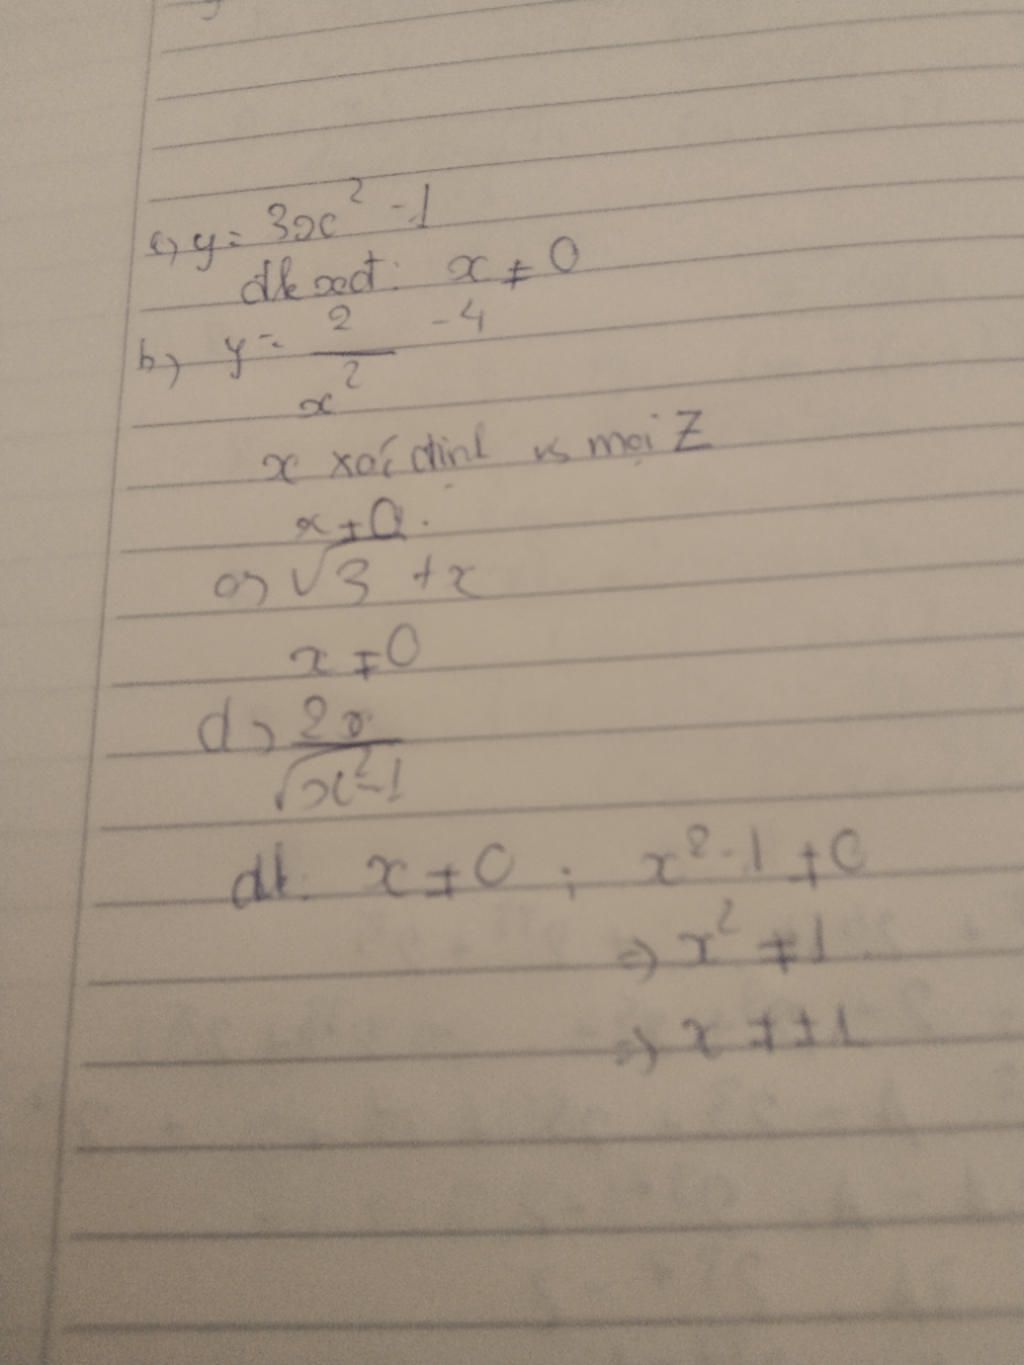 a) y = 3x² - 1
đk xđ: x ≠ 0
b) y = 2/x² - 4
x xác định vs mọi Z
x ≠ 0.
c) √3 + x
x ≠ 0
d) 2x/√x²-1
đk. x ≠ 0 ; x² - 1 ≠ 0
=> x² ≠ 1
=> x ≠ ±1